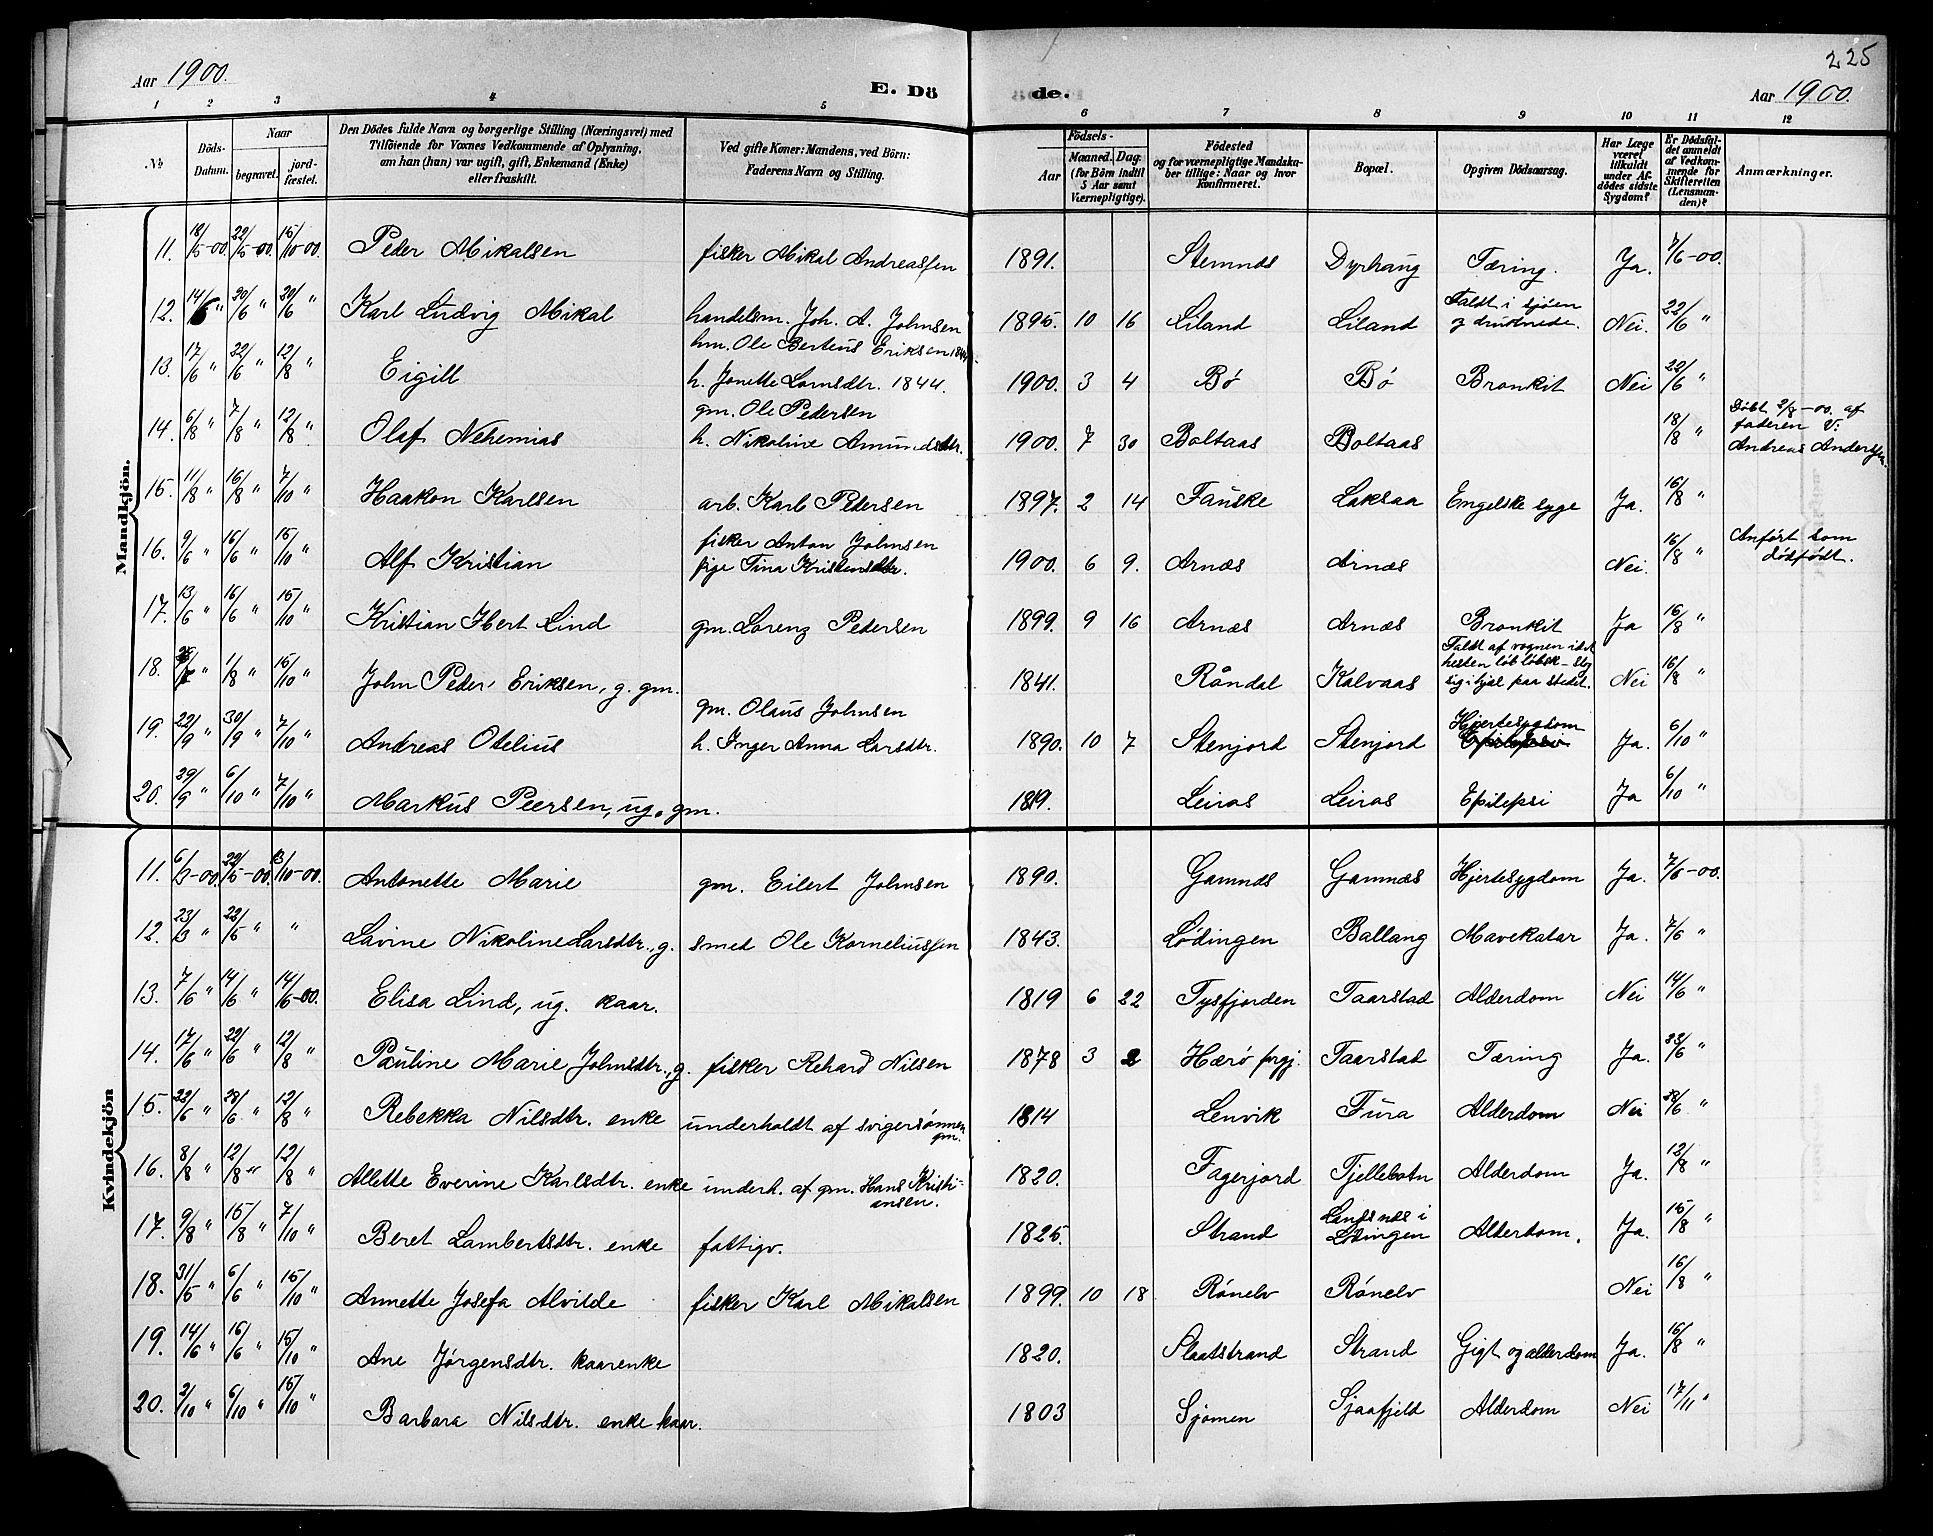 225
Aar 1900. E. Dö de. Aar 1900.
1 2 3 4 5 6 7 8 9 10 11 12
№ Döds-Datum. Naar begravet. jordfæstet. Den Dödes fulde Navn og borgerlige Stilling (Næringsvei) med Tilföiende for Voxnes Vedkommende af Oplysning, om han (hun) var ugift, gift, Enkemand (Enke) eller fraskilt. Ved gifte Koner: Mandens, ved Börn: Faderens Navn og Stilling. Födsels- Aar Maaned. Dag. (for Börn indtil 5 Aar samt Værnepligtige). Födested og for værnepligtige Mandskaber tillige: Naar og hvor konfirmeret. Bopæl. Opgiven Dödsaarsag. Har Læge været tilkaldt under Afdödes sidste Sygdom? Er Dödsfaldet anmeldt af Vedkommende for Skifteretten (Lensmanden)? Anmærkninger.
Mandkjön.
11. 18/5-00 22/5-00. 15/10-00 Peder Mikalsen fisker Mikal Andreassen 1891. Stemnæs Dyrhaug Tæring. Ja. 7/6-00.
12. 14/6 " 20/6 " 20/6 " Karl Ludvig Mikal handelsm. Joh. A. Johnsen 1895. 10 16 Liland Liland Faldt i sjøen og druknede. Nei. 22/6 "
13. 17/6 " 22/6 " 12/8 " Eigill hm. Ole Berteus Eriksen 1844. h. Jonette Larnsdtr. 1844. 1900. 3 4 Bø Bø Bronkit Nei 22/6 "
14. 6/8 " 7/8 " 12/8 " Olaf Nehemias gm. Ole Pedersen h. Nikoline Amundsdtr. 1900. 7 30 Boltaas Boltaas 18/8 " Døbt 2/8-00. af faderen V: Andreas Anderssen.
15. 11/8 " 16/8 " 7/10 " Haakon Karlsen arb. Karl Pedersen 1897. 2 14 Fauske Laksaa Engelske syge Ja. 16/8 "
16. 9/6 " 16/6 " 15/10 " Alf Kristian fisker Anton Johnsen pige Tina Kristensdtr. 1900. 6 9. Arnæs Arnæs Nei. 16/8 " Anført som dødfødt.
17. 13/6 " 16/6 " 15/10 " Kristian Hbert Lind gm. Lorenz Pedersen 1899. 9 16 Arnæs Arnæs Bronkit Ja 16/8 "
18. " 1/8 " 15/10 " John Peder Eriksen, g. gm. 1841. Råndal Kalvaas Faldt af vognen idet hesten løb løbsk – slog sig ihjel paa stedet. Nei 16/8 "
19. 22/9 " 30/9 " 7/10 " Andreas Otelius gm. Olaus Johnsen h. Inger Anna Larsdtr. 1890. 10 7 Stenjord Stenjord Hjertesygdom Epilepsi Ja. 6/10 "
20. 29/9 " 6/10 " 7/10 " Markus Peersen, ug. gm. 1819. Leiros Leiros Epilepsi Ja 6/10 "
Kvindekjön
11. 6/3-00. 22/5-00. 13/10-00. Antonette Marie gm. Eilert Johnsen 1890. Gamnæs Gamnæs Hjertesygdom Ja. 7/6-00.
12. 23/3 " 22/5 " " Lavine Nikoline Larsdtr., g. smed Ole Korneliussen 1843. Lødingen Ballang Mavekatar Ja. 7/6 "
13. 7/6 " 14/6 " 14/6-00. Elisa Lind, ug. kaar. 1819 6 22 Tysfjorden Taarstad Alderdom Nei 14/6 "
14. 17/6 " 22/6 " 12/8 " Pauline Marie Johnsdtr., g. fisker Rehard Nilsen 1878 3 2 Hærø prgj. Taarstad Tæring Ja. 23/6 "
15. 22/6 " 28/6 " 12/8 " Rebekka Nilsdtr. enke underholdt af svigersønnen gm. 1814 Lenvik Fura Alderdom Nei 28/6 "
16. 8/8 " 12/8 " 12/8 " Alette Everine Karlsdtr. enke underh. af gm. Hans Kristiansen. 1820. Fagerjord Tjellebotn Alderdom Ja. 13/8 "
17. 9/8 " 15/8 " 7/10 " Beret Lambertsdtr. enke fattigv. 1825. Strand Landsnæs i Lødingen Alderdom. Ja. 15/8 "
18. 31/5 " 6/6 " 15/10 " Annette Josefa Alvilde fisker Karl Mikalsen 1899. 10 18 Rønelv Rønelv Nei 16/8 "
19. 14/6 " 16/6 " 15/10 " Ane Jørgensdtr. kaarenke 1820. Slaatstrand Strand Gigt og alderdom Ja. 16/8 "
20. 2/10 " 6/10 " 15/10 " Barbara Nilsdtr. enke kaar. 1803 Sjomen Sjaafjeld Alderdom Nei 17/11 "